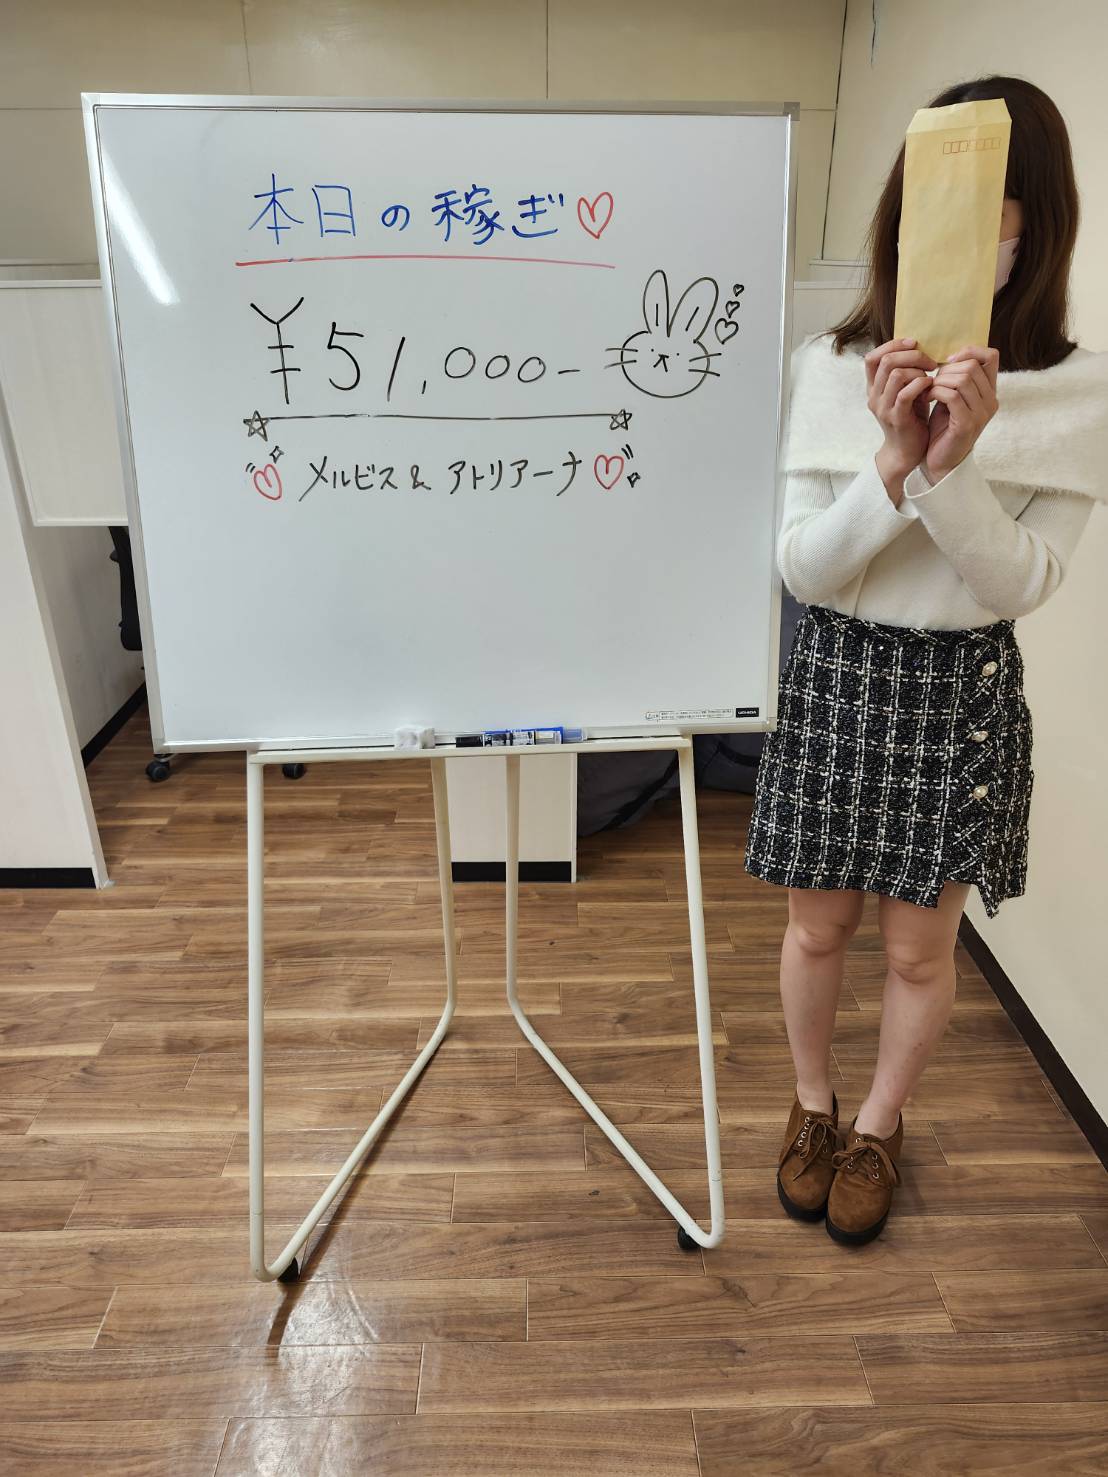 本日の稼ぎ♡
¥51,000-
メルビス&アトリアーナ
UCHIDA